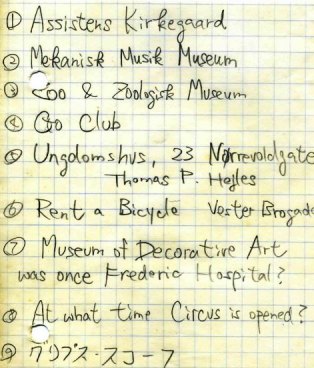 ① Assistens Kirkegaard
② Mekanisk Musik Museum
③ Zoo & Zoologisk Museum
④ Go Club
⑤ Ungdomshus, 23 Nørrevoldgate
Thomas P. Hejles
⑥ Rent a Bicycle Vester Brogade
⑦ Museum of Decorative Art
was once Frederic Hospital?
⑧ At what time Circus is opened?
⑨ グリプス・スコーフ